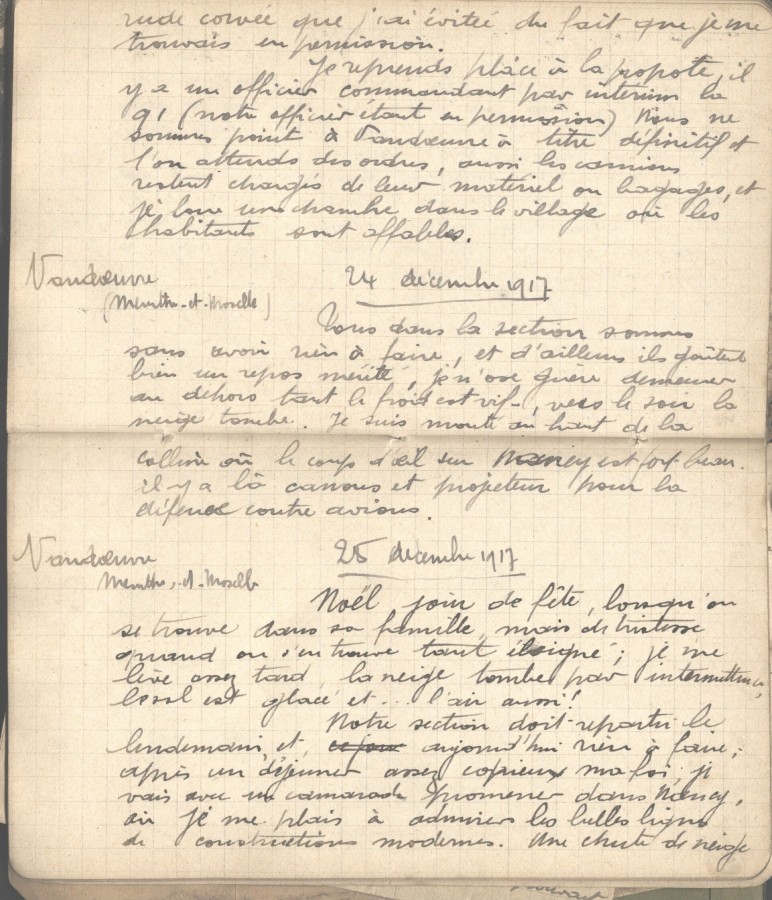 rude corvée que j'ai évitée du fait que je me
trouvais en permission.
Je reprends place à la popote, il
y a un officier commandant par intérim la
91 (notre officier étant en permission) Nous ne
sommes point à Vandœuvre à titre définitif et
l'on attends des ordres, aussi les camions
restent chargés de leur matériel ou bagages, et
je loue une chambre dans le village où les
habitants sont affables.
Vandœuvre
(Meurthe-et-Moselle)
24 décembre 1917
Tous dans la section sommes
sans avoir rien à faire, et d'ailleurs ils goûtent
bien un repos mérité, je n'ose guère demeurer
au dehors tant le froid est vif, vers le soir la
neige tombe. Je suis monté au haut de la
colline où le coup d'œil sur Nancy est fort beau.
il y a là canons et projecteur pour la
défense contre avions.
Vandœuvre
Meurthe-et-Moselle
25 décembre 1917
Noël, jour de fête, lorsqu'on
se trouve dans sa famille, mais de tristesse
quand on s'en trouve tant éloigné; je me
lève assez tard, la neige tombe par intermittence,
le sol est glacé et... l'air aussi!
Notre section doit repartir le
lendemain, et ce jour aujourd'hui rien à faire;
après un déjeuner assez copieux ma foi, je
vais avec un camarade promener dans Nancy,
où je me plais à admirer les belles lignes
de constructions modernes. Une chute de neige